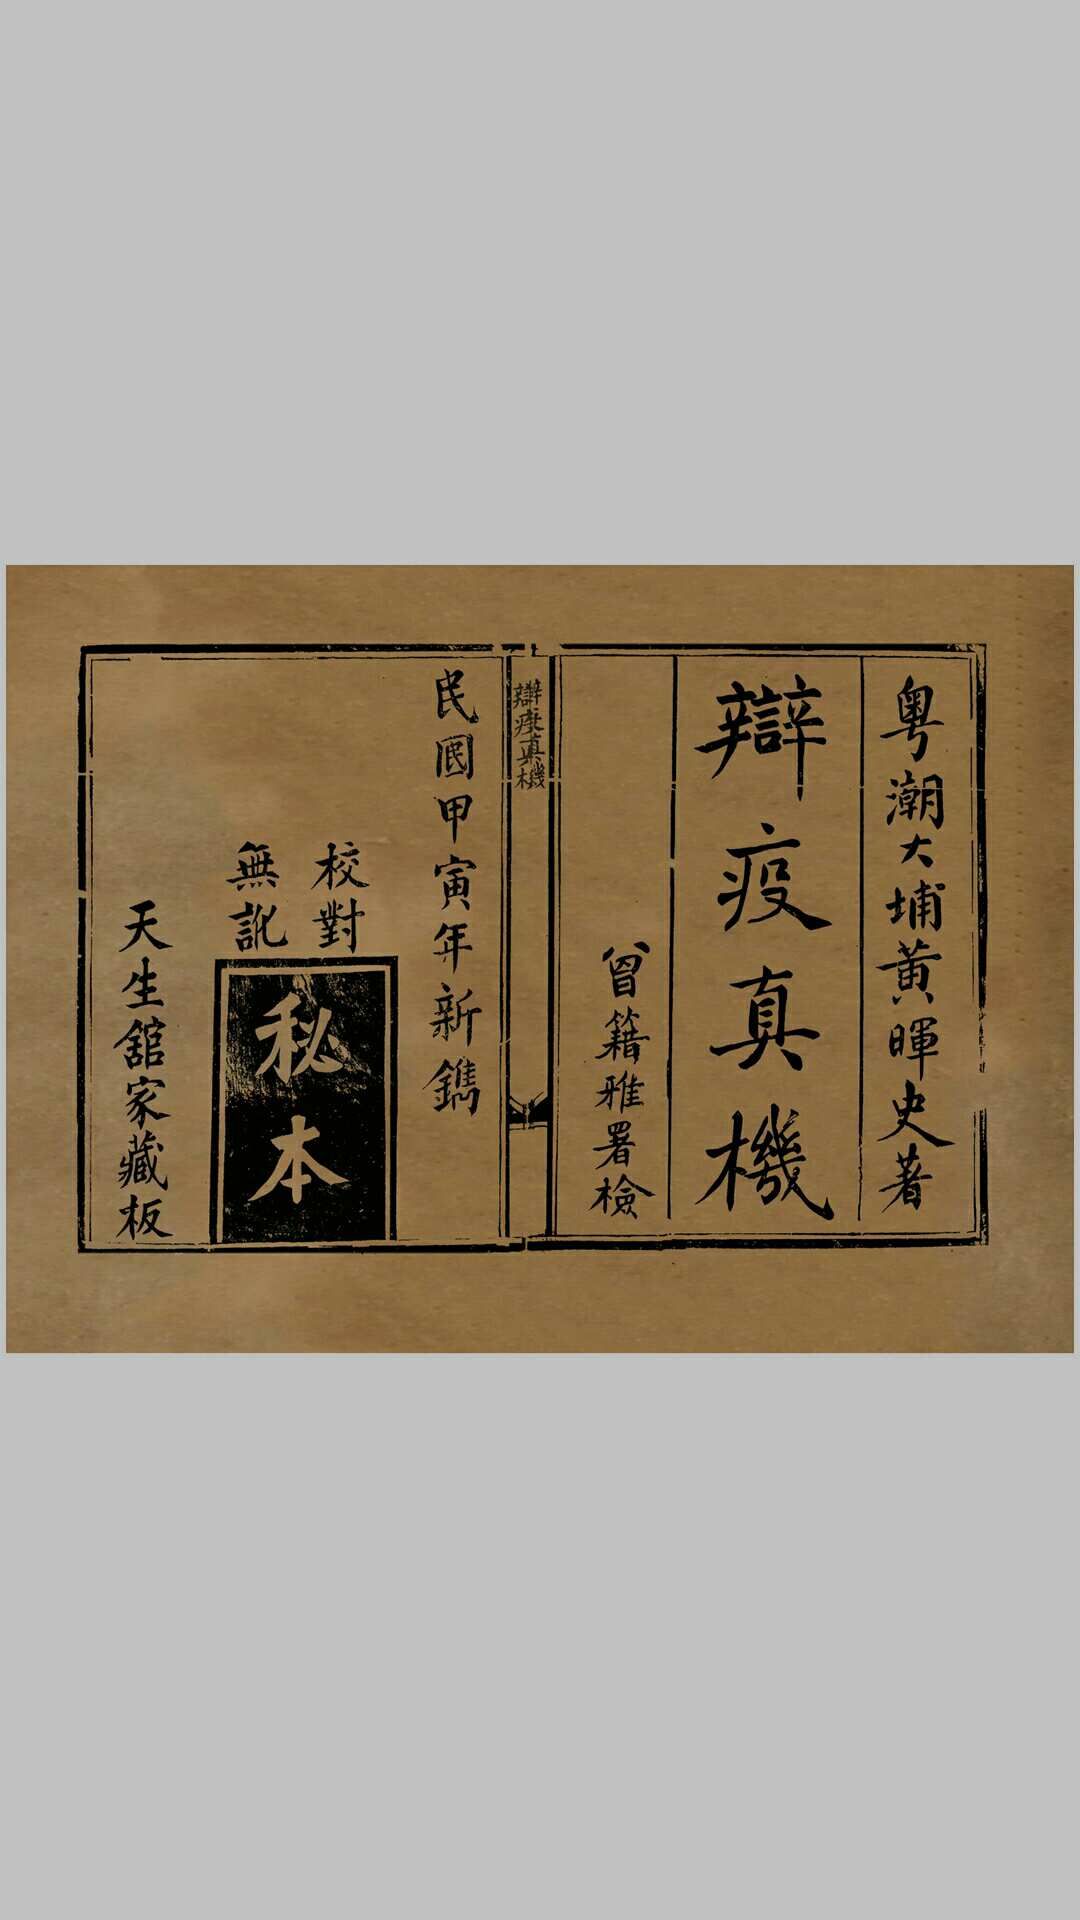 粵潮大埔黃暉史著
辯疫真機
曾籍雅署檢
辯疫真機
民國甲寅年新鐫
校對
無訛
秘本
天生舘家藏板